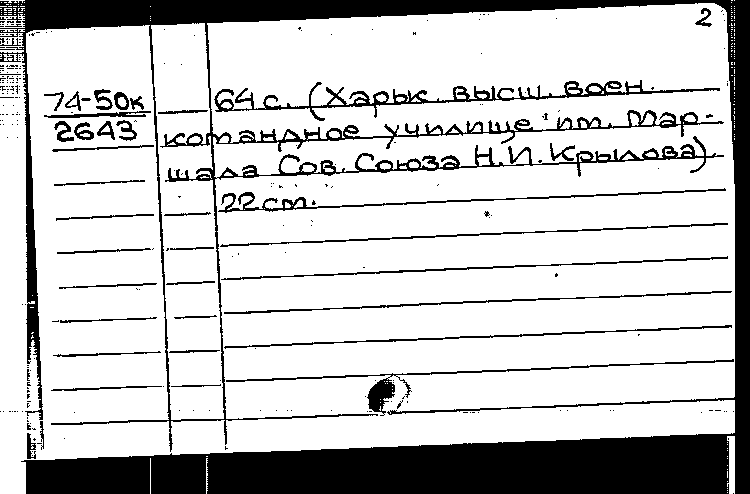 2
74-50к 64 с. (Харьк. высш. воен.
2643 командное училище им. Мар-
шала Сов. Союза Н.И. Крылова).
22 см.